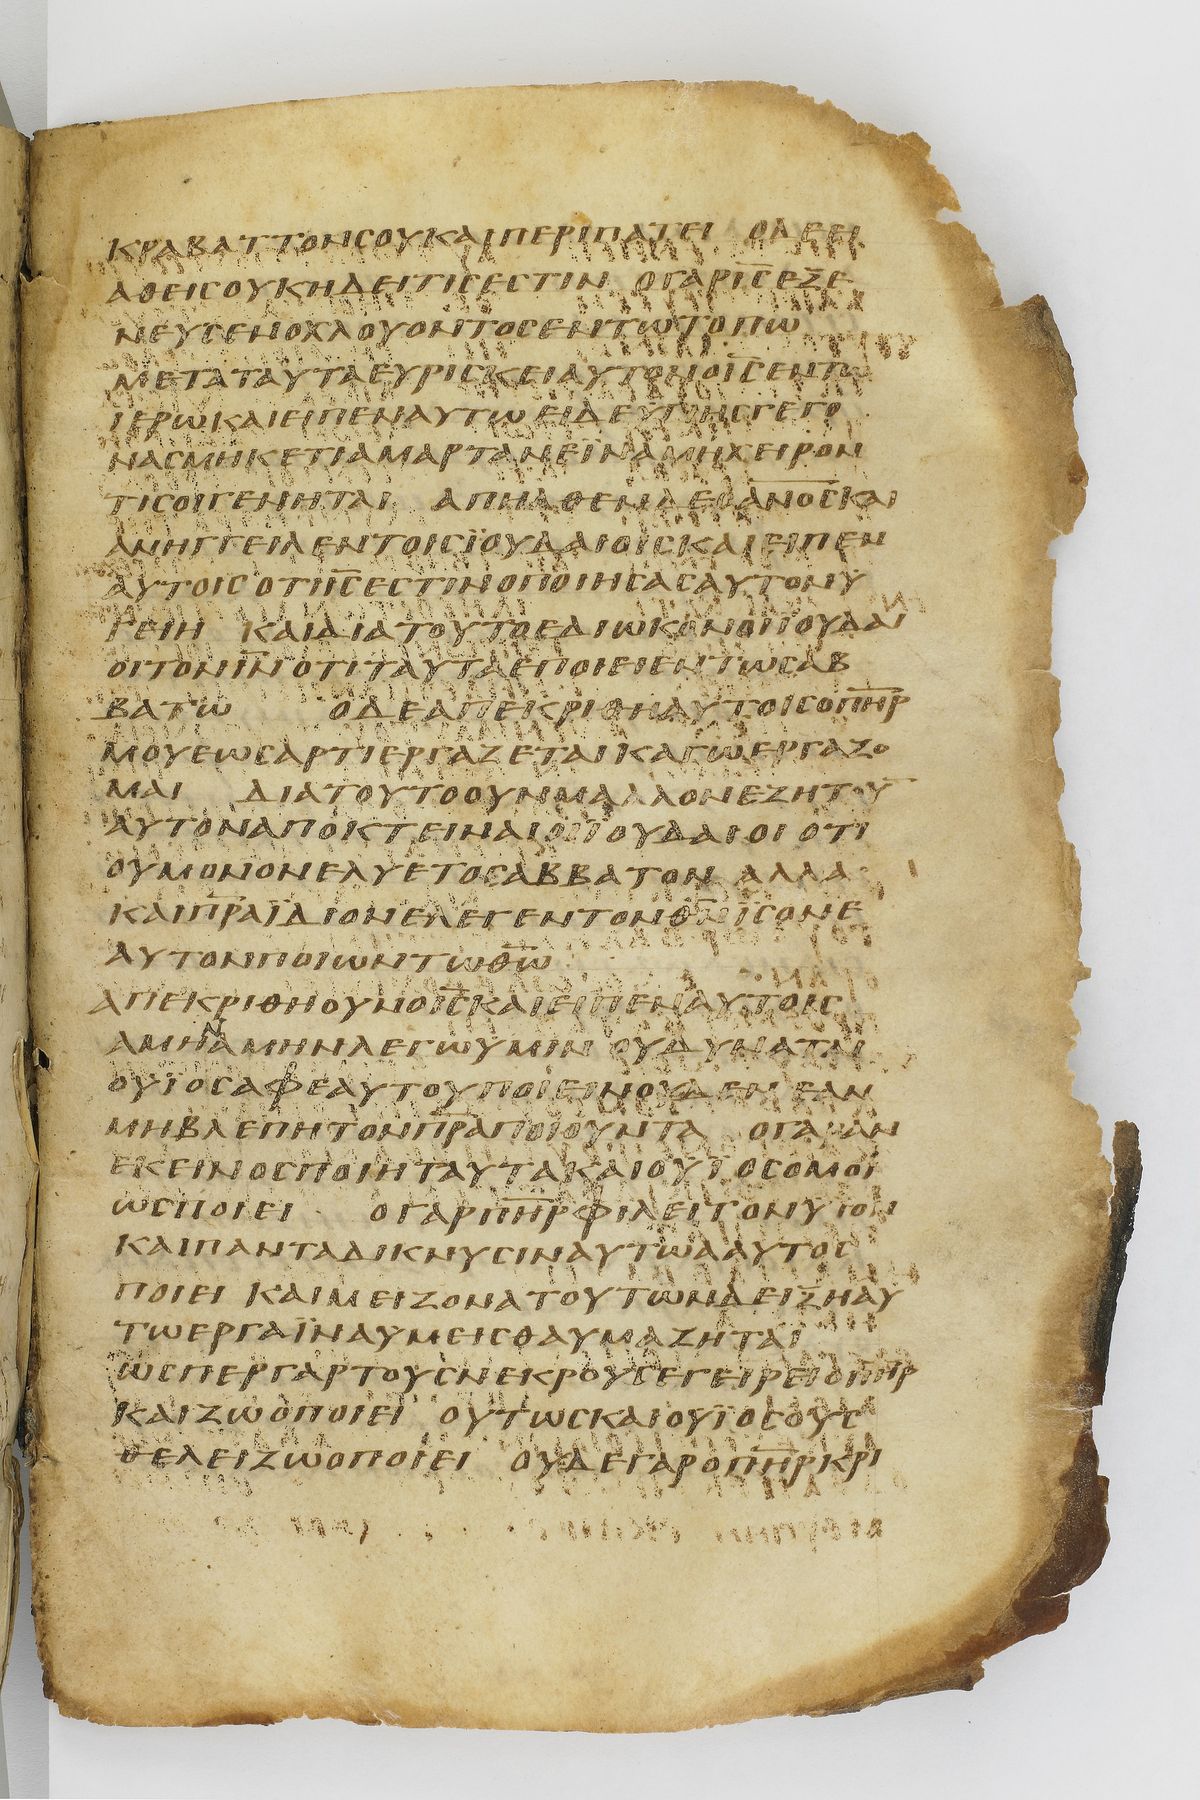 ΚΡΑΒΑΤΤΟΝΣΟΥΚΑΙΠΕΡΙΠΑΤΕΙ ΟΔΕΕΙ
ΑΘΕΙΣΟΥΚΗΔΕΙΤΙΣΕΣΤΙΝ ΟΓΑΡΙ̅Σ̅ΕΞΕ
ΝΕΥΣΕΝΟΧΛΟΥΟΝΤΟΣΕΝΤΩΤΟΠΩ
ΜΕΤΑΤΑΥΤΑΕΥΡΙΣΚΕΙΑΥΤΟΝΟΙ̅Σ̅ΕΝΤΩ
ΙΕΡΩΚΑΙΕΙΠΕΝΑΥΤΩΕΙΔΕΫΓΙΗΣΓΕΓΟ
ΝΑΣΜΗΚΕΤΙΑΜΑΡΤΑΝΕΪΝΑΜΗΧΕΙΡΟΝ
ΤΙΣΟΙΓΕΝΗΤΑΙ ΑΠΗΛΘΕΝΔΕΟΑ̅Ν̅Ο̅Σ̅ΚΑΙ
ΑΝΗΓΓΕΙΛΕΝΤΟΙΣΪΟΥΔΑΙΟΙΣΚΑΙΕΙΠΕΝ
ΑΥΤΟΙΣΟΤΙΙ̅Σ̅ΕΣΤΙΝΟΠΟΙΗΣΑΣΑΥΤΟΝΥ
ΓΕΙΗ ΚΑΙΔΙΑΤΟΥΤΟΕΔΙΩΚΟΝΟΙΪΟΥΔΑΙ
ΟΙΤΟΝΙ̅Ν̅ΟΤΙΤΑΥΤΑΕΠΟΙΕΙΕΝΤΩΣΑΒ
ΒΑΤΩ ΟΔΕΑΠΕΚΡΙΘΗΑΥΤΟΙΣΟΠ̅Η̅Ρ̅
ΜΟΥΕΩΣΑΡΤΙΕΡΓΑΖΕΤΑΙΚΑΓΩΕΡΓΑΖΟ
ΜΑΙ ΔΙΑΤΟΥΤΟΟΥΝΜΑΛΛΟΝΕΖΗΤΟΥ̅
ΑΥΤΟΝΑΠΟΚΤΕΙΝΑΙΟΙΪΟΥΔΑΙΟΙΟΤΙ
ΟΥΜΟΝΟΝΕΛΥΕΤΟΣΑΒΒΑΤΟΝΑΛΛΑ
ΚΑΙΠ̅Ρ̅Α̅ΪΔΙΟΝΕΛΕΓΕΝΤΟΝΘ̅Ν̅ΙΣΟΝΕ
ΑΥΤΟΝΠΟΙΩΝΤΩΘ̅Ω̅
ΑΠΕΚΡΙΘΗΟΥΝΟΙ̅Σ̅ΚΑΙΕΙΠΕΝΑΥΤΟΙΣ
ΑΜΗΝΑΜΗΝΛΕΓΩΥΜΙΝ ΟΥΔΥΝΑΤΑΙ
ΟΥΪΟΣΑΦΕΑΥΤΟΥΠΟΙΕΙΝΟΥΔΕΝ ΕΑΝ
ΜΗΒΛΕΠΗΤΟΝΠ̅Ρ̅Α̅ΠΟΙΟΥΝΤΑ ΟΓΑΡΑΝ
ΕΚΕΙΝΟΣΠΟΙΗΤΑΥΤΑΚΑΙΟΥΪΟΣΟΜΟΙ
ΩΣΠΟΙΕΙ ΟΓΑΡΠ̅Η̅Ρ̅ΦΙΛΕΙΤΟΝΥΙΟΝ
ΚΑΙΠΑΝΤΑΔΙΚΝΥΣΙΝΑΥΤΩΑΑΥΤΟΣ
ΠΟΙΕΙ ΚΑΙΜΕΙΖΟΝΑΤΟΥΤΩΝΔΕΙΞΗΑΥ
ΤΩΕΡΓΑΪΝΑΥΜΕΙΣΘΑΥΜΑΖΗΤΑΙ
ΩΣΠΕΡΓΑΡΤΟΥΣΝΕΚΡΟΥΣΕΓΕΙΡΕΙΟΠ̅Η̅Ρ̅
ΚΑΙΖΩΟΠΟΙΕΙ ΟΥΤΩΣΚΑΙΟΥΪΟΣΟΥΣ
ΘΕΛΕΙΖΩΟΠΟΙΕΙ ΟΥΔΕΓΑΡΟΠ̅Η̅Ρ̅ΚΡΙ